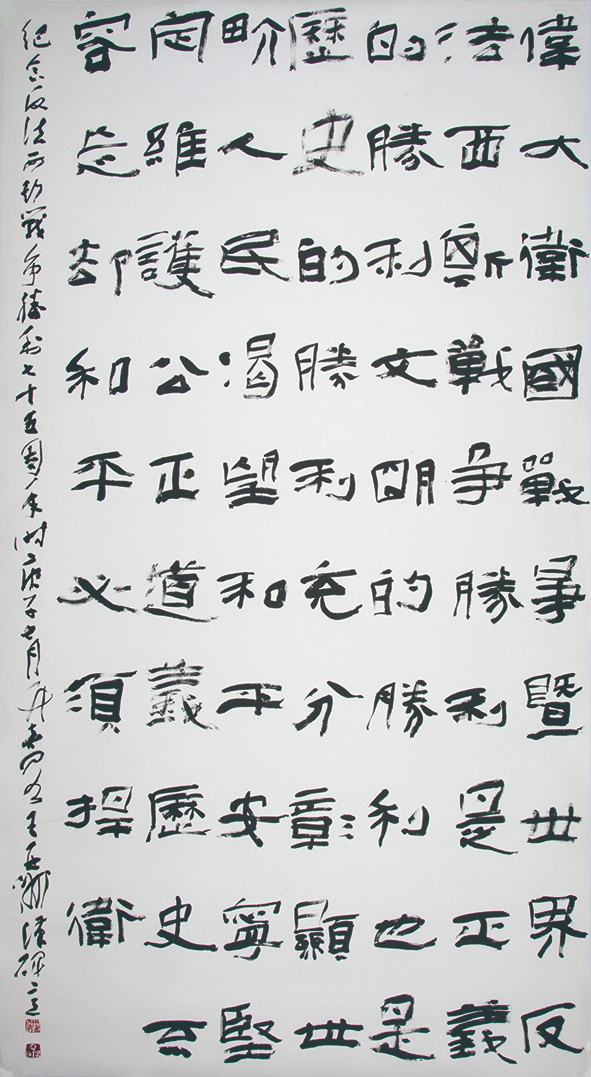 偉大衛國戰爭暨世界反
法西斯戰爭勝利是正義
的勝利文明的勝利也是
歷史的勝利充分彰顯世
界人民渴望和平安寧堅
定維護公正道義歷史不
容忘却和平必須捍衛
纪念反法西斯战争胜利七十五周年时庚子七月